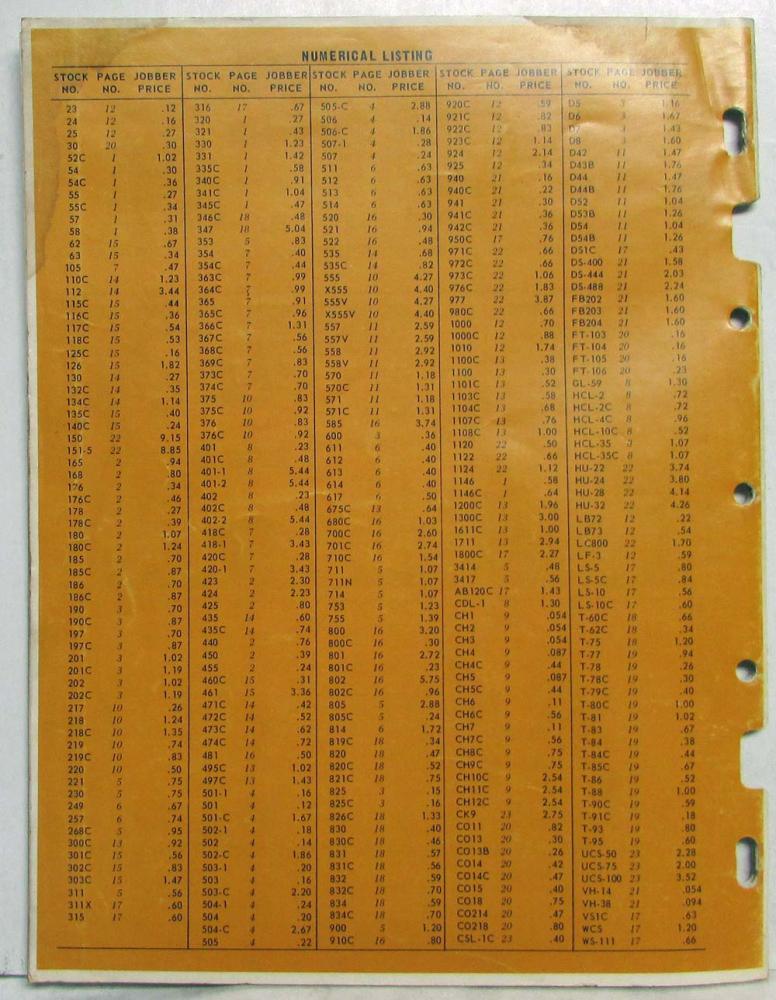 NUMERICAL LISTING
STOCK NO. PAGE NO. JOBBER PRICE
23 12 .12
24 12 .16
25 12 .27
30 20 .30
52C 1 1.02
54 1 .30
54C 1 .36
55 1 .27
55C 1 .34
57 1 .31
58 1 .38
62 15 .67
63 15 .34
105 7 .47
110C 14 1.23
112 14 3.44
115C 15 .44
116C 15 .36
117C 15 .54
118C 15 .53
125C 15 .16
126 15 1.82
130 14 .27
132C 14 .35
134C 14 1.14
135C 15 .40
140C 15 .24
150 22 9.15
151-5 22 8.85
165 2 .94
168 2 .80
176 2 .34
176C 2 .46
178 2 .27
178C 2 .39
180 2 1.07
180C 2 1.24
185 2 .70
185C 2 .87
186 2 .70
186C 2 .87
190 3 .70
190C 3 .87
197 3 .70
197C 3 .87
201 3 1.02
201C 3 1.19
202 3 1.02
202C 3 1.19
217 10 .26
218 10 1.24
218C 10 1.35
219 10 .74
219C 10 .83
220 10 .50
221 5 .75
230 5 .75
249 6 .67
257 6 .74
268C 5 .95
300C 13 .92
301C 15 .56
302C 15 .83
303C 15 1.47
311 5 .56
311X 17 .60
315 17 .60
STOCK NO. PAGE NO. JOBBER PRICE
316 17 .67
320 1 .27
321 1 .43
330 1 1.23
331 1 1.42
335C 1 .58
340C 1 .91
341C 1 1.04
345C 1 .47
346C 18 .48
347 18 5.04
353 5 .83
354 7 .40
354C 7 .44
363C 7 .99
364C 7 .99
365 7 .91
365C 7 .96
366C 7 1.31
367C 7 .56
368C 7 .56
369C 7 .83
373C 7 .70
374C 7 .70
375 10 .83
375C 10 .92
376 10 .83
376C 10 .92
401 8 .23
401C 8 .48
401-1 8 5.44
401-2 8 5.44
402 8 .23
402C 8 .48
402-2 8 5.44
418C 7 .28
418-1 7 3.43
420C 7 .28
420-1 7 3.43
423 2 2.30
424 2 2.23
425 2 .80
435 14 .60
435C 14 .74
440 2 .76
450 2 .39
455 2 .24
460C 15 .31
461 15 3.36
471C 14 .42
472C 14 .52
473C 14 .62
474C 14 .72
481 16 .50
495C 13 1.02
497C 13 1.43
501-1 4 .16
501 4 .12
501-C 4 1.67
502-1 4 .18
502 4 .14
502-C 4 1.86
503-1 4 .20
503 4 .16
503-C 4 2.20
504-1 4 .24
504 4 .20
504-C 4 2.67
505 4 .22
STOCK NO. PAGE NO. JOBBER PRICE
505-C 4 2.88
506 4 .14
506-C 4 1.86
507-1 4 .28
507 4 .24
511 6 .63
512 6 .63
513 6 .63
514 6 .63
520 16 .30
521 16 .94
522 16 .48
535 14 .68
535C 14 .82
555 10 4.27
X555 10 4.40
555V 10 4.27
X555V 10 4.40
557 11 2.59
557V 11 2.59
558 11 2.92
558V 11 2.92
570 11 1.18
570C 11 1.31
571 11 1.18
571C 11 1.31
585 16 3.74
600 3 .36
611 6 .40
612 6 .40
613 6 .40
614 6 .40
617 6 .50
675C 13 .64
680C 16 1.03
700C 16 2.60
701C 16 2.74
710C 16 1.54
711 5 1.07
711N 5 1.07
714 5 1.07
753 5 1.23
755 5 1.39
800 16 3.20
800C 16 .30
801 16 2.72
801C 16 .23
802 16 5.75
802C 16 .96
805 5 2.88
805C 5 .24
814 6 1.72
819C 18 .34
820 18 .47
820C 18 .52
821C 18 .75
825 3 .15
825C 3 .16
826C 18 1.33
830 18 .40
830C 18 .46
831 18 .57
831C 18 .56
832 18 .59
832C 18 .70
834 18 .59
834C 18 .70
900 5 1.20
910C 16 .80
STOCK NO. PAGE NO. JOBBER PRICE
920C 12 .59
921C 12 .82
922C 12 .83
923C 12 1.14
924 12 2.14
925 12 .34
940 21 .16
940C 21 .22
941 21 .30
941C 21 .36
942C 21 .36
950C 17 .76
971C 22 .66
972C 22 .66
973C 22 1.06
976C 22 1.83
977 22 3.87
980C 22 .66
1000 12 .70
1000C 12 .88
1010 12 1.74
1100C 13 .38
1100 13 .30
1101C 13 .52
1103C 13 .58
1104C 13 .68
1107C 13 .76
1108C 13 1.00
1120 22 .50
1122 22 .66
1124 22 1.12
1146 1 .58
1146C 1 .64
1200C 13 1.96
1300C 13 3.00
1611C 13 1.00
1711 13 2.94
1800C 17 2.27
3414 5 .48
3417 5 .56
AB120C 17 1.43
CDL-1 8 1.30
CH1 9 .054
CH2 9 .054
CH3 9 .054
CH4 9 .087
CH4C 9 .44
CH5 9 .087
CH5C 9 .44
CH6 9 .11
CH6C 9 .56
CH7 9 .11
CH7C 9 .56
CH8C 9 .75
CH9C 9 .75
CH10C 9 2.54
CH11C 9 2.54
CH12C 9 2.54
CK9 23 2.75
CO11 20 .82
CO13 20 .30
CO13B 20 .26
CO14 20 .42
CO14C 20 .47
CO15 20 .40
CO18 20 .75
CO214 20 .47
CO218 20 .80
CSL-1C 23 .40
STOCK NO. PAGE NO. JOBBER PRICE
D5 3 1.16
D6 3 1.67
D7 3 1.43
D8 3 1.60
D42 11 1.47
D43B 11 1.76
D44 11 1.47
D44B 11 1.76
D52 11 1.04
D53B 11 1.26
D54 11 1.04
D54B 11 1.26
DS1C 17 .43
DS-400 21 1.58
DS-444 21 2.03
DS-488 21 2.24
FB202 21 1.60
FB203 21 1.60
FB204 21 1.60
FT-103 20 .16
FT-104 20 .16
FT-105 20 .16
FT-106 20 .23
GL-59 8 1.30
HCL-2 8 .72
HCL-2C 8 .72
HCL-4C 8 .96
HCL-10C 8 .52
HCL-35 8 1.07
HCL-35C 8 1.07
HU-22 22 3.74
HU-24 22 3.80
HU-28 22 4.14
HU-32 22 4.26
LB72 12 .22
LB73 12 .54
LC800 22 1.70
LF-3 12 .59
LS-5 17 .80
LS-5C 17 .84
LS-10 17 .56
LS-10C 17 .60
T-60C 18 .66
T-62C 18 .34
T-75 18 1.20
T-77 19 .94
T-78 19 .26
T-78C 19 .30
T-79C 19 .40
T-80C 19 1.00
T-81 19 1.02
T-83 19 .67
T-84 19 .38
T-84C 19 .44
T-85C 19 .67
T-86 19 .52
T-88 19 1.00
T-90C 19 .59
T-91C 19 .18
T-93 19 .80
T-95 19 .60
UCS-50 23 2.28
UCS-75 23 2.00
UCS-100 23 3.52
VH-14 21 .054
VH-38 21 .094
VS1C 17 .63
WCS 17 1.20
WS-111 17 .66